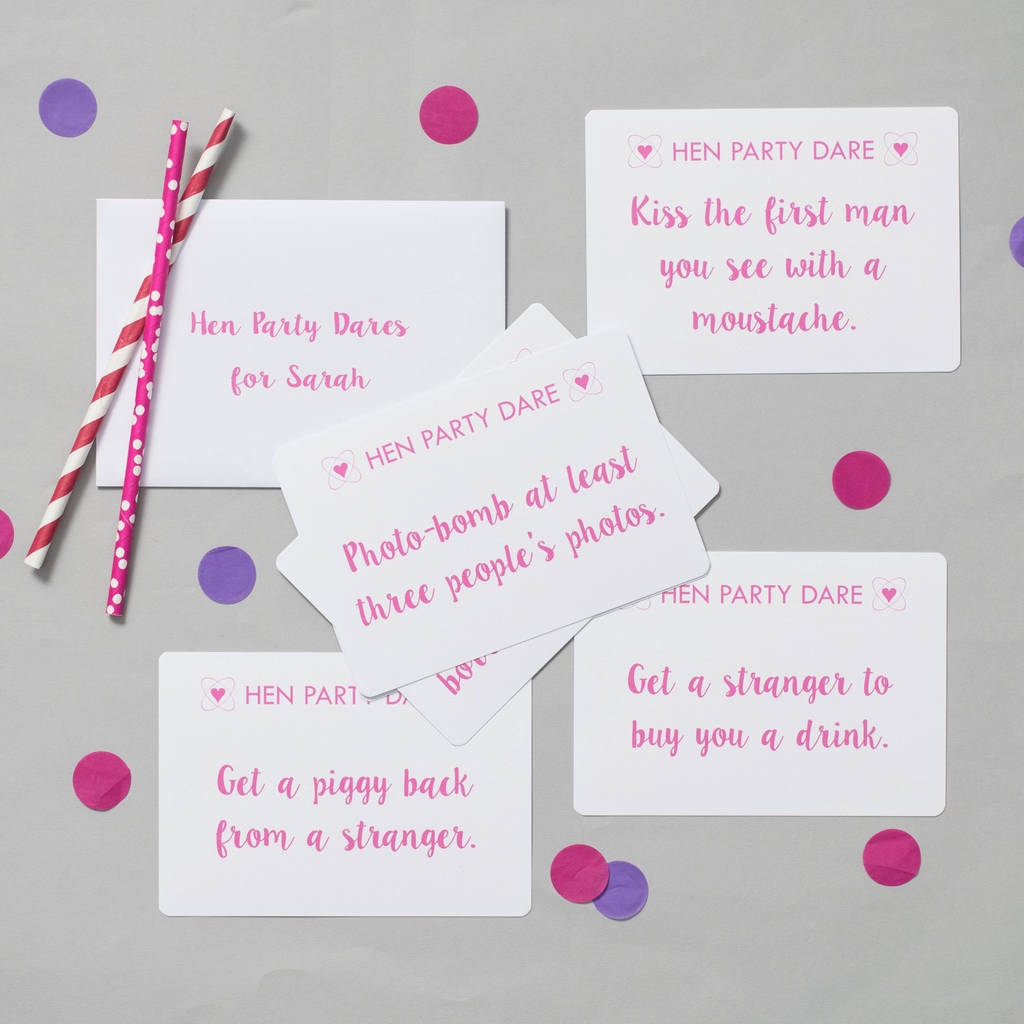 Hen Party Dares
for Sarah
HEN PARTY DARE
Kiss the first man
you see with a
moustache.
HEN PARTY DARE
Photo-bomb at least
three people's photos.
HEN PARTY DARE
Get a stranger to
buy you a drink.
HEN PARTY
Get a piggy back
from a stranger.